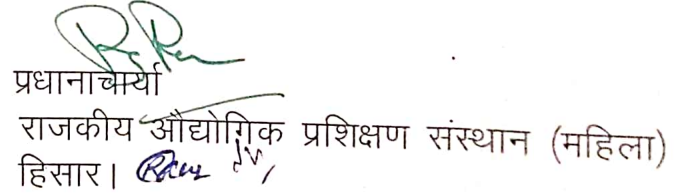 प्रधानाचार्या
राजकीय औद्योगिक प्रशिक्षण संस्थान (महिला)
हिसार।